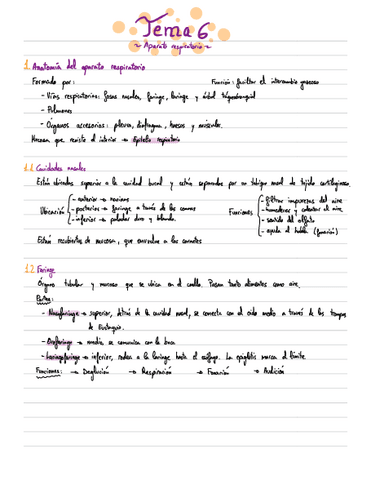 Tema 6
~ Aparato respiratorio ~
1. Anatomía del aparato respiratorio
Formado por: Función: facilitar el intercambio gaseoso
- Vías respiratorias: fosas nasales, faringe, laringe y árbol traqueobronquial
- Pulmones
- Órganos accesorios: pleura, diafragma, huesos y músculos.
Mucosa que reviste el interior → Epitelio respiratorio
1.1. Cavidades nasales
Están ubicadas superior a la cavidad bucal y están separadas por un tabique nasal de tejido cartilaginoso
Ubicación
- anterior → narinas
- posterior → faringe a través de las coanas
- inferior → paladar duro y blando.
Funciones
- filtrar impurezas del aire
- humedecer y calentar el aire
- sentido del olfato
- ayuda al habla (fonación)
Están recubiertas de mucosa, que envuelve a los cornetes
1.2. Faringe
Órgano tubular y mucoso que se ubica en el cuello. Pasan tanto alimentos como aire.
Partes:
- Nasofaringe → superior, detrás de la cavidad nasal, se conecta con el oído medio a través de las trompas
de Eustaquio.
- Orofaringe → media, se comunica con la boca
- Laringofaringe → inferior, rodea a la laringe hasta el esófago. La epiglotis marca el límite.
Funciones: → Deglución → Respiración → Fonación → Audición